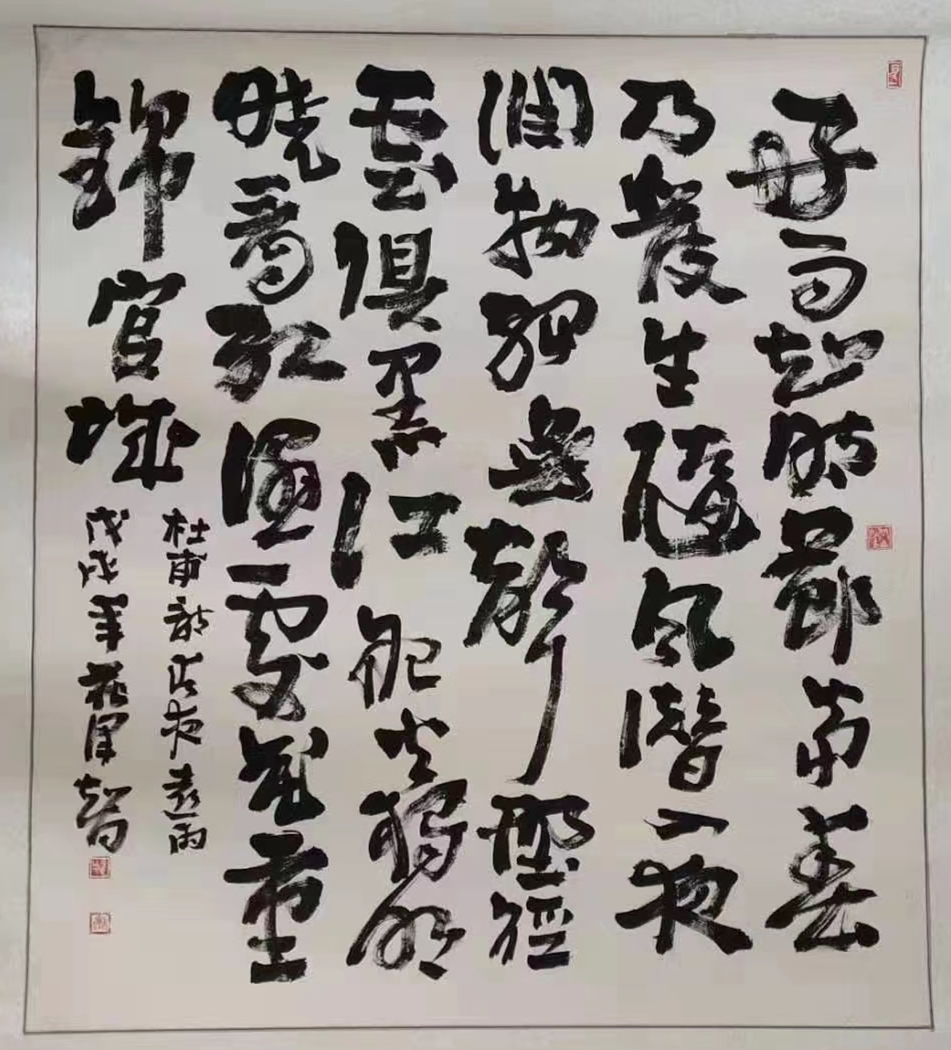 好雨知時節當春
乃發生隨風潛入夜
潤物細無聲野徑
雲俱黑江船火獨明
曉看紅濕處花重
錦官城
杜甫詩春夜喜雨
戊戌年